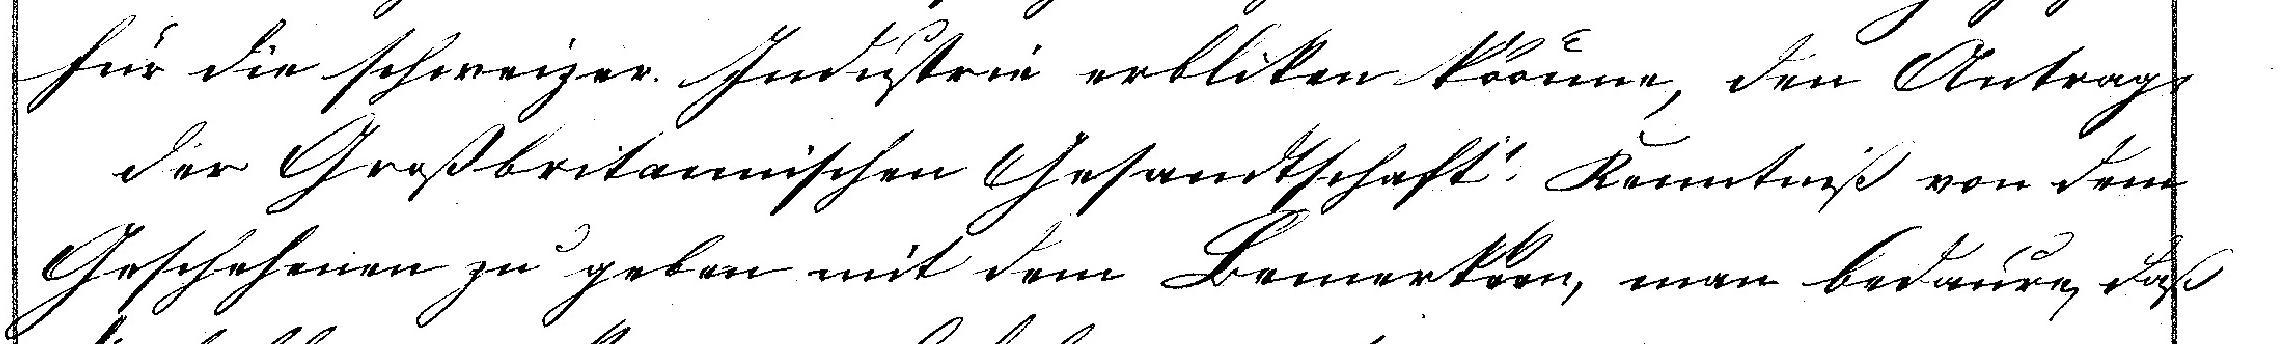 für die schweizer. Industrie erbliken könne, den Antrag,
der Großbritannischen Gesandtschaft Kenntniß von dem
Geschehenen zu geben mit dem Bemerken, man bedaure, daß